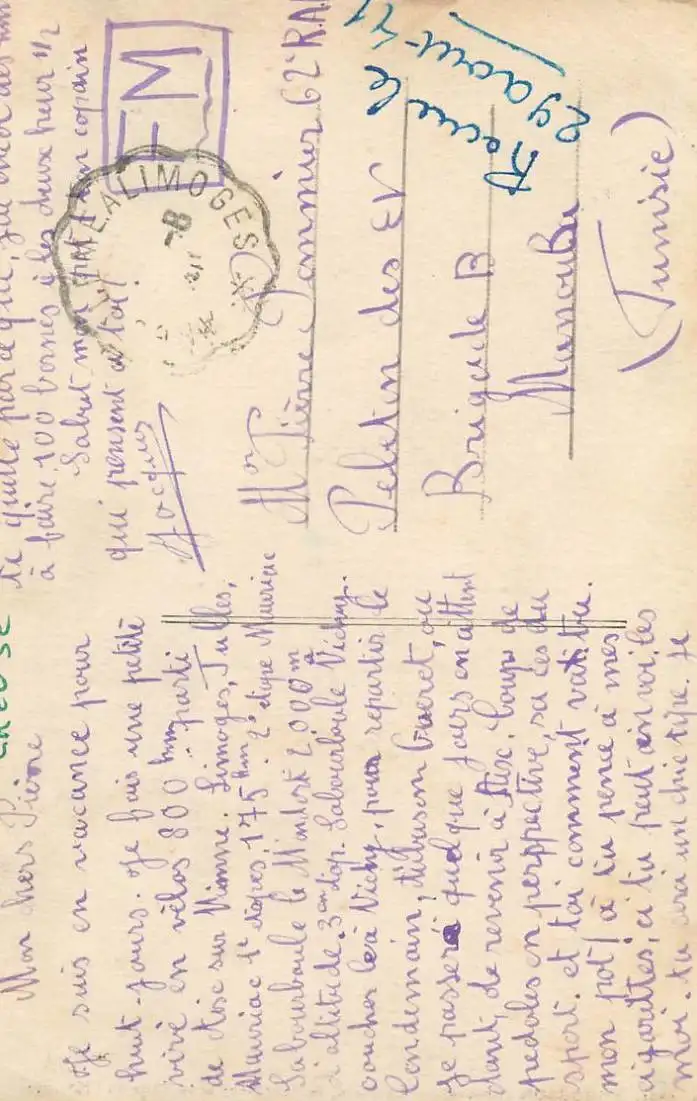 CREUSE
Mon chers Pierre
Je suis en vacance pour
huit-jours. Je fais une petite
viré en vélos 800 km parti
de Aixe sur Vienne. Limoges, Tulles,
Mauriac 1e étapes, 175 km. 2e etape Mauriac
Labourboule le Mindort 2.000 m
d'altitude. 3em étap. Labourboule Vichy.
coucher là à Vichy, pour repartir le
lendemain, Gueret, ou
je passeré quelque jours en attent
dant, de revenir à Aixe. Coups de
pedales en perppective, sa ces du
sport. et toi comment vat tu.
mon pot! à tu pensé à mes
cigarettes, ci tu peut envoi les
moi. tu sera un chic type. Je
te quitte parce que, j'ai encor
à faire 100 bornes é les deux heur 1/2
Salut mon copain
qui pensent a toi!
Jacques
FM
LIMOGES
Mor Pierre 62e RA
Peloton des EV
Brigade B
Manouba
(Tunisie)
Recu le
29 aout 41